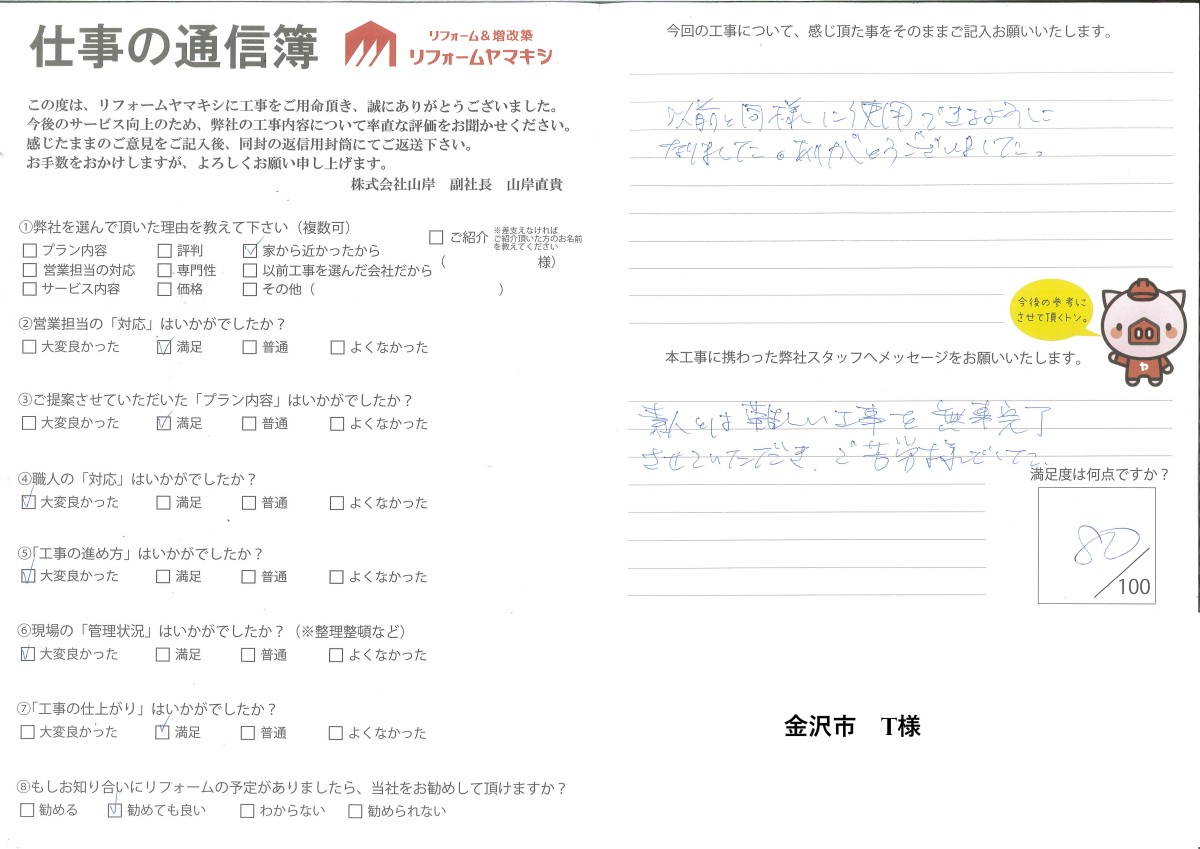 仕事の通信簿
リフォーム&増改築
リフォームヤマキシ
この度は、リフォームヤマキシに工事をご用命頂き、誠にありがとうございました。
今後のサービス向上のため、弊社の工事内容について率直な評価をお聞かせください。
感じたままのご意見をご記入後、同封の返信用封筒にてご返送下さい。
お手数をおかけしますが、よろしくお願い申し上げます。
株式会社山岸 副社長 山岸直貴
①弊社を選んで頂いた理由を教えて下さい（複数可）
□プラン内容 □評判 ☑家から近かったから
□営業担当の対応 □専門性 □以前工事を選んだ会社だから
□サービス内容 □価格 □その他（ ）
□ご紹介 ※差支えなければ
ご紹介頂いた方のお名前
を教えてください
（ 様）
②営業担当の「対応」はいかがでしたか？
□大変良かった ☑満足 □普通 □よくなかった
③ご提案させていただいた「プラン内容」はいかがでしたか？
□大変良かった ☑満足 □普通 □よくなかった
④職人の「対応」はいかがでしたか？
☑大変良かった □満足 □普通 □よくなかった
⑤「工事の進め方」はいかがでしたか？
☑大変良かった □満足 □普通 □よくなかった
⑥現場の「管理状況」はいかがでしたか？（※整理整頓など）
☑大変良かった □満足 □普通 □よくなかった
⑦「工事の仕上がり」はいかがでしたか？
□大変良かった ☑満足 □普通 □よくなかった
⑧もしお知り合いにリフォームの予定がありましたら、当社をお勧めして頂けますか？
□勧める ☑勧めても良い □わからない □勧められない
今回の工事について、感じ頂た事をそのままご記入お願いいたします。
以前と同様に使用できるように
なりました。ありがとうございました。
今後の参考に
させて頂くトン。
ヤ
本工事に携わった弊社スタッフへメッセージをお願いいたします。
素人とは難しい工事を無事完了
させていただき、ご苦労様でした。
満足度は何点ですか？
80
/100
金沢市 T様